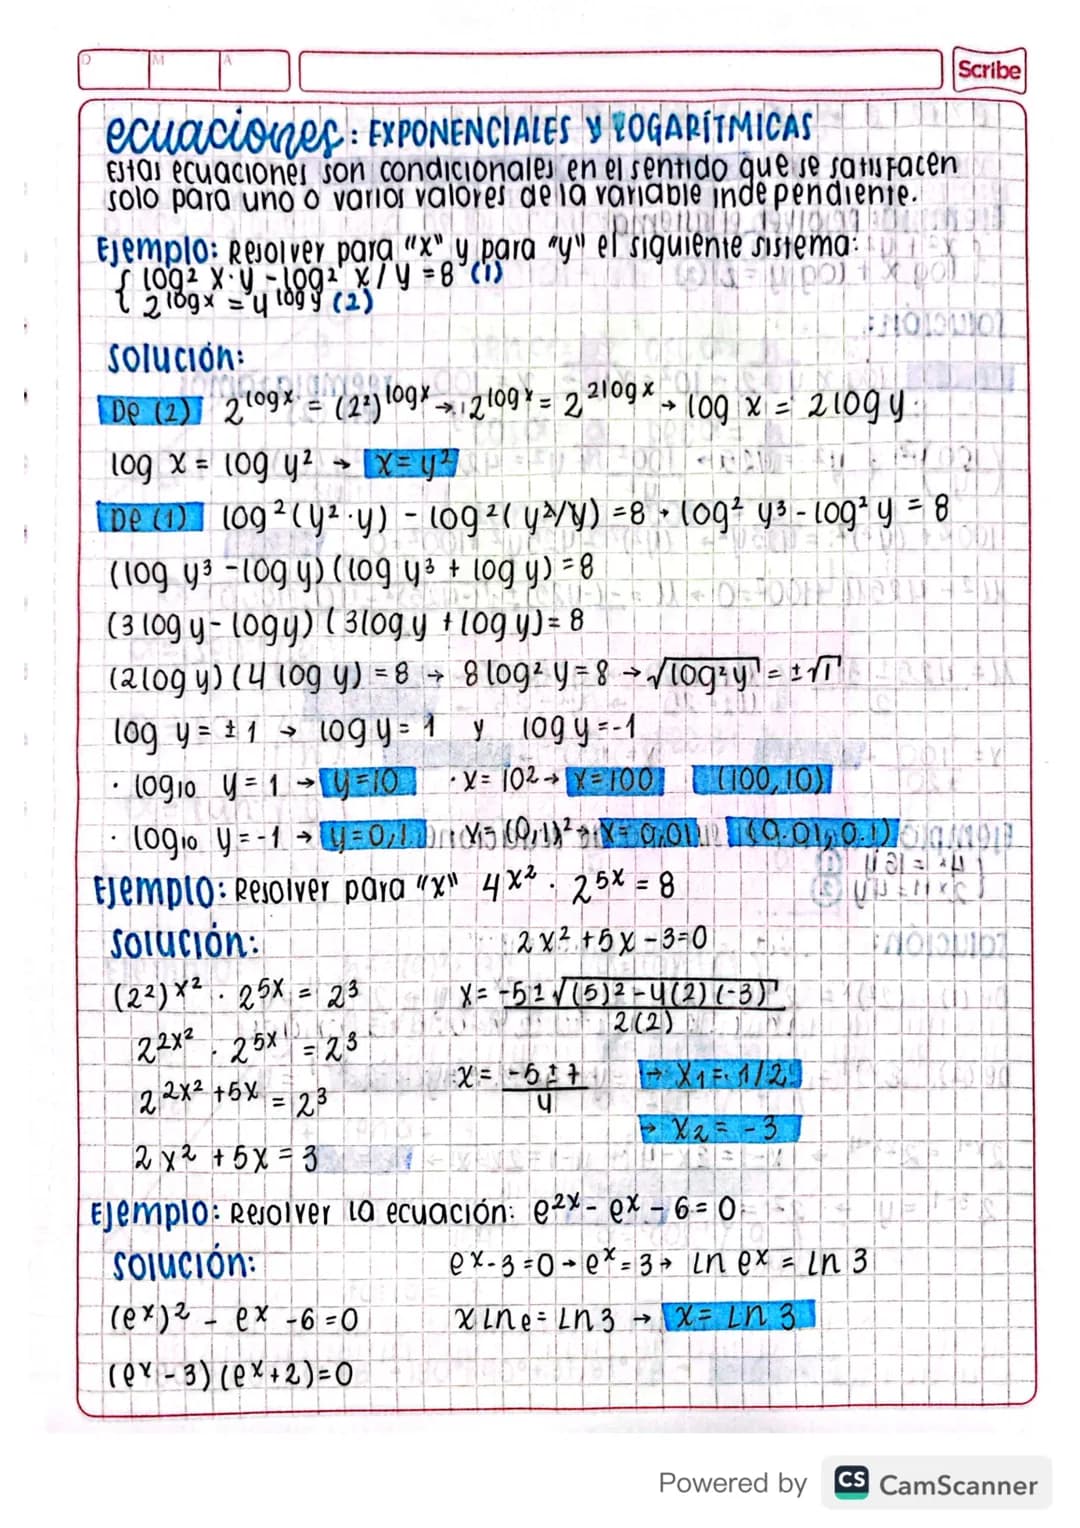 D M A
Scribe
ecuaciones: EXPONENCIALES y LOGARÍTMICAS
Estas ecuaciones son condicionales en el sentido que se satisfacen
solo para uno o varios valores de la variable independiente.
Ejemplo: Resolver para "x" y para "y" el siguiente sistema:
{ log² x·y - log² x/y = 8 (1)
2^log x = 4^log y (2)
Solución:
De (2) 2^log x = (2²)^log x → 2^log x = 2^2log x → log x = 2log y
log x = log y² → x = y²
De (1) log²(y²·y) - log²(y²/y) = 8 → log² y³ - log² y = 8
(log y³ - log y)(log y³ + log y) = 8
(3log y - log y)(3log y + log y) = 8
(2log y)(4 log y) = 8 → 8 log² y = 8 → √log² y = ±√1
log y = ±1 → log y = 1 y log y = -1
· log₁₀ y = 1 → y = 10 · x = 10² → x = 100 (100, 10)
· log₁₀ y = -1 → y = 0,1 x = (0,1)² → x = 0,01 (0.01, 0.1)
Ejemplo: Resolver para "x" 4^x² · 2^5x = 8
Solución: 2x² + 5x - 3 = 0
(2²)^x² · 2^5x = 2³ x = -5±√(5)² - 4(2)(-3) / 2(2)
2^2x² · 2^5x = 2³
x = -5±7 / 4 → x₁ = 1/2
2^2x² + 5x = 2³
→ x₂ = -3
2x² + 5x = 3
Ejemplo: Resolver la ecuación: e^2x - e^x - 6 = 0
Solución: e^x - 3 = 0 → e^x = 3 → ln e^x = ln 3
(e^x)² - e^x - 6 = 0 x ln e = Ln 3 → x = Ln 3
(e^x - 3)(e^x + 2) = 0
Powered by CS CamScanner